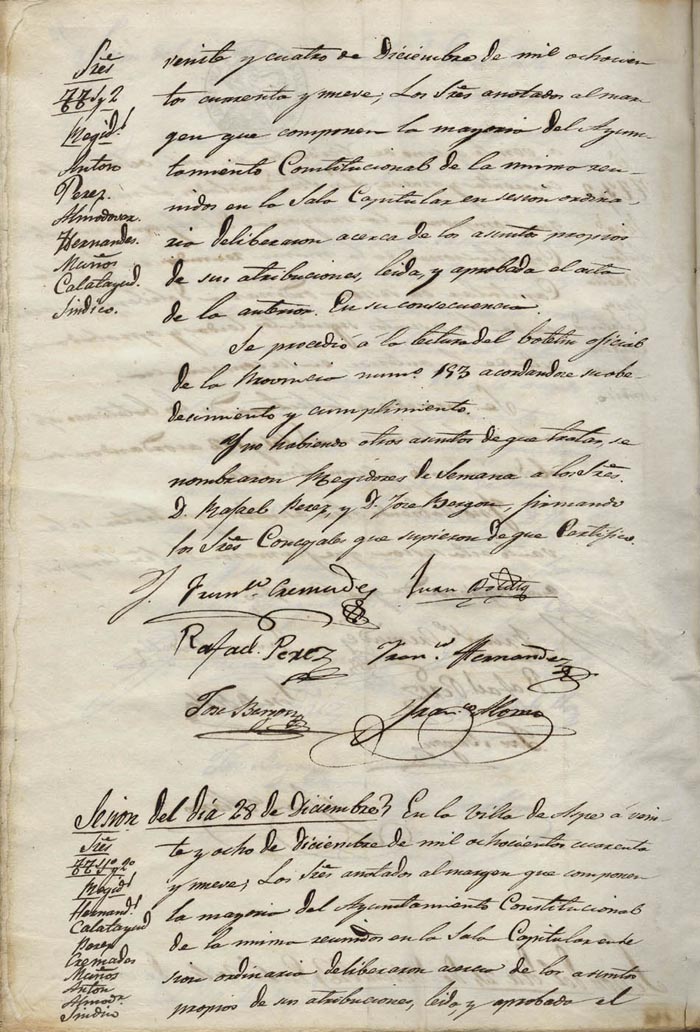 Sres
TT. 1º y 2º
Regids
Anton
Perez
Almodovar.
Hernandes.
Muños
Calatayud.
Sindico.
veinte y cuatro de Diciembre de mil ochocien
tos cuarenta y nueve; Los Sres anotados al mar-
gen que componen la mayoria del Ayun-
tamiento Constitucional de la misma reu-
nidos en la Sala Capitular en sesion ordina-
ria deliberaron acerca de los asuntos propios
de sus atribuciones, leida, y aprobada el acta
de la anterior. En su consecuencia.
Se procedió á la lectura del boletin oficial
de la Provincia numº 153 acordandose su obe-
decimiento y cumplimiento.
Y no habiendo otros asuntos de que tratar, se
nombraron Regidores de Semana a los Sres.
D. Rafael Perez, y D. Jose Bergon, firmando
los Sres Concejales que supieron de que Certifico.
Franco Cremades Juan
Rafael Perez Franco Hernandez
Jose Bergon Franco Alonso
Sesion del dia 28 de Diciembre En la Villa de Aspe á vein-
Sres
TT. 1º y 2º
Regids
Hernands
Calatayud
Perez
Cremades
Muños
Anton
Almodr
Sindico
te y ocho de Diciembre de mil ochocientos cuarenta
y nueve; Los Sres anotados al margen que componen
la mayoria del Ayuntamiento Constitucional
de la misma reunidos en la Sala Capitular en se
sion ordinaria deliberaron acerca de los asuntos
propios de sus atribuciones, leida y aprobada el